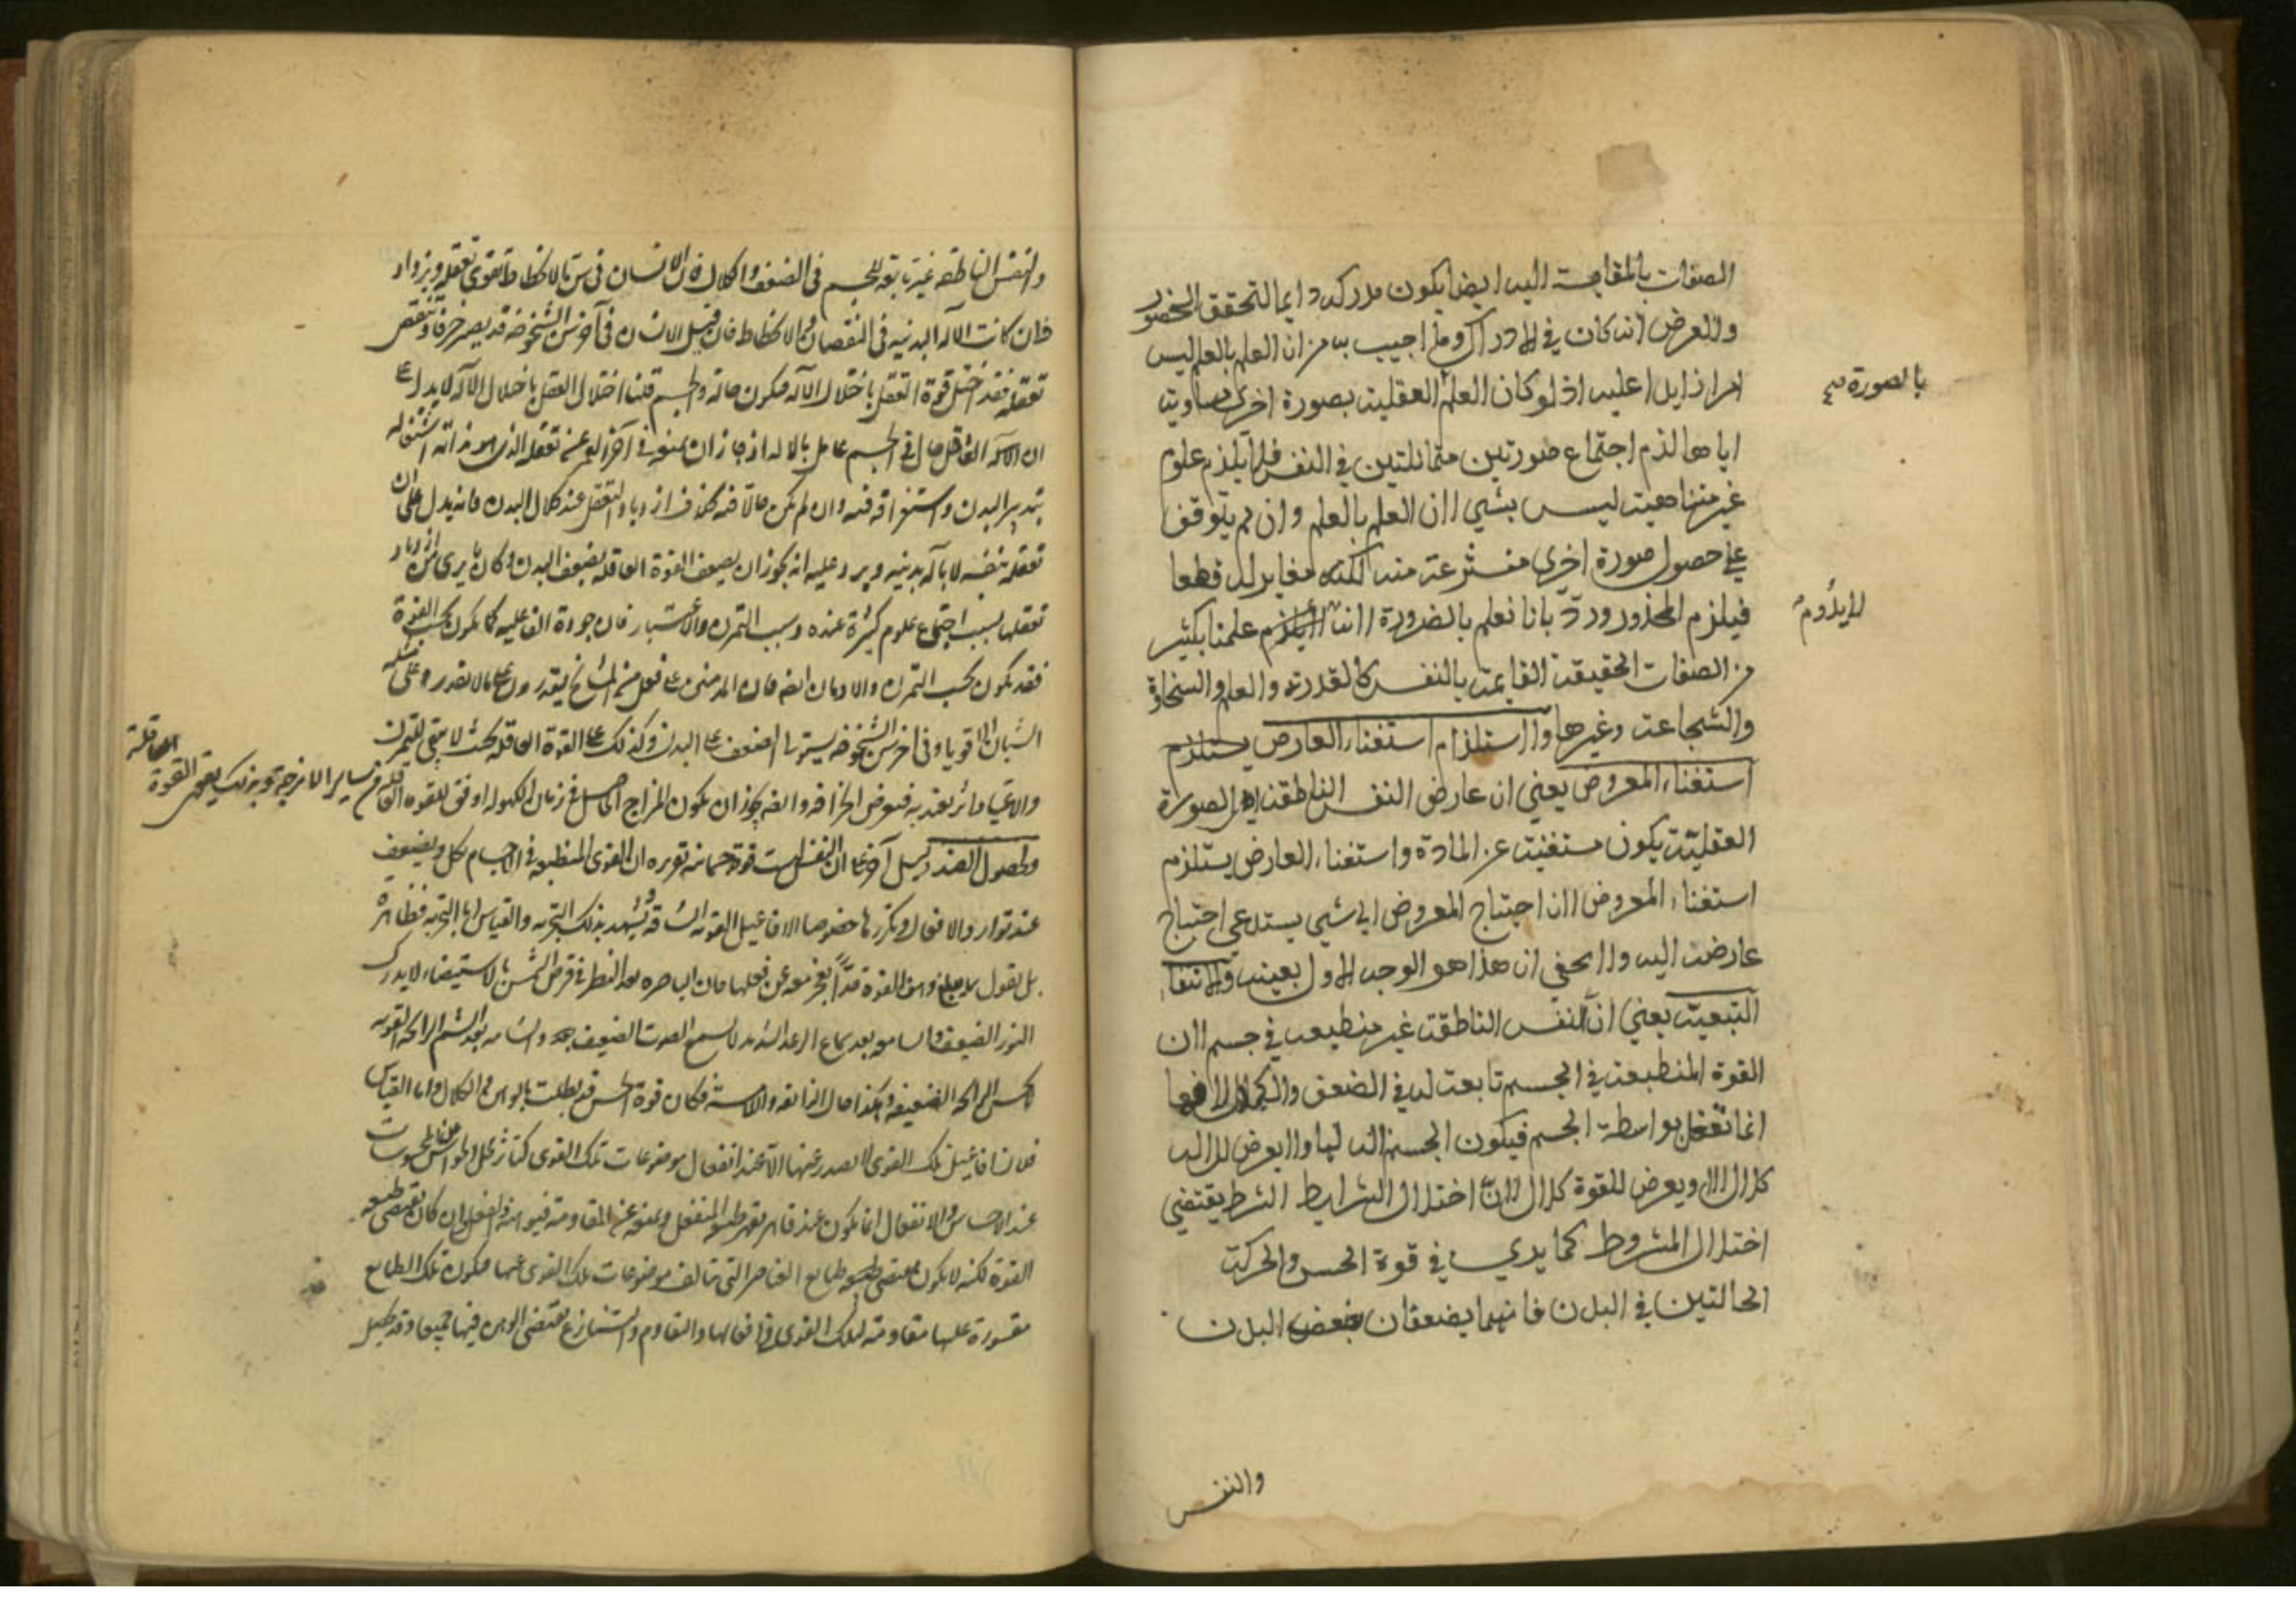 الصفات بالمقايسة اليه ايضا يكون مدركه دايما لتحقق الحضور
والعرض انه كان في الادراك وما اجيب به من ان العلم بالعلم ليس
امرا زايدا عليه اذ لو كان العلم العقلية بصورة اخرى مساوية
بالصورة
اياها لزم اجتماع صورتين متماثلتين في النفس فلا يلزم علوم
غير متناهية ليس بشي لان العلم بالعلم وان لم يتوقف
على حصول صورة اخرى منتزعة منه لكنه مغاير له قطعا
فيلزم المحذور ورد بانا نعلم بالضرورة انه لا يلزم علمنا بكثير
لا يدوم
من الصفات الحقيقة القايمة بالنفس كالقدرة والعلم والسخاوة
والشجاعة وغيرها ولاستلزام استغناء العارض يستلزم
استغناء المعروض يعني ان عارض النفس الناطقة اي الصورة
العقلية يكون مستغنية عن المادة واستغناء العارض يستلزم
استغناء المعروض لان احتياج المعروض الى شي يستدعي احتياج
عارضه اليه ولا يخفى ان هذا هو الوجه الاول بعينه ولانتفاء
التبعية يعني ان النفس الناطقة غير منطبعة في جسم لان
القوة المنطبعة في الجسم تابعة له في الضعف والكلال لانها
انما تفعل بواسطة الجسم فيكون الجسم آلة لها ولا يعرض للآلة
كلال الا ويعرض للقوة كلال لان اختلال الشرايط الشرط يقتضي
اختلال المشروط كما يرى في قوة الحس والحركة
الحالتين في البدن فانهما يضعفان بضعف البدن
والنفس
والنفس الناطقة غير تابعة للجسم في الضعف والكلال فان الانسان في سن الانحطاط تقوى تعقله ويزداد
فان كانت الآلة البدنية في النقصان والانحطاط فان قيل الانسان في آخر سن الشيخوخة قد يصير خرفا وتنقص
تعقله فقد اختل قوة التعقل باختلال الآلة فيكون حالة في الجسم قلنا اختلال العقل باختلال الآلة لا يدل على
ان العاقل حال في الجسم عامل بالآلة اذ جاز ان يمنعه في آخر العمر عن تعقله الذي هو بذاته اشتغاله
بتدبير البدن واستغراقه فيه وان لم يكن حالا فيه بخلاف ازدياد التعقل عند كلال البدن فانه يدل على ان
تعقله بنفسه لا بآلة بدنية ويرد عليه انه يجوز ان يضعف القوة العاقلة بضعف البدن وكان ما يرى من ازدياد
تعقلها بسبب اجتماع علوم كثيرة عنده وبسبب التمرن والاعتبار فان جودة الفاعلية كما يكون بحسب القوة
فقد يكون بحسب التمرن والادمان ايضا فان المدمنين على فعل من المشايخ يقدرون على ما لا يقدر على مثله
الشبان الاقوياء وفي آخر سن الشيخوخة يستولي الضعف على البدن وكذلك على القوة العاقلة بحيث لا يبقى للتمرن
والاعتياد اثر يعتد به فيعرض الخرافة وايضا يجوز ان يكون المزاج الحاصل في زمان الكهولة اوفق للقوة العاقلة من ساير الامزجة وبذلك يقوى القوة العاقلة
ولحصول الضد دليل آخر على ان النفس ليست قوة جسمانية تقريره ان القوى المنطبعة في الاجسام تكل ويضعف
عند توارد الافعال وتكررها خصوصا الافاعيل القوية الشاقة وتشهد بذلك التجربة والقياس اما التجربة فظاهرة
النور الضعيف والسامعة بعد سماع الرعد الشديد لا تسمع الصوت الضعيف والشامة بعد الشم الرائحة القوية
لا تحس الرائحة الضعيفة وهكذا حال الذائقة واللامسة فكان قوة الحس قد بطلت بالوهن والكلال واما القياس
فلان افاعيل تلك القوى لا تصدر عنها الا عند انفعال موضوعات تلك القوى كتأثر محل الحواس عن المحسوسات
القوة لكنه لا يكون مقتضى طبايع العناصر التي تتالف موضوعات تلك القوى عنها فيكون تلك الطبايع
مقسورة عليها مقاومة لتلك القوى في افعالها والتقاوم والتنازع يقتضي الوهن فيها جميعا